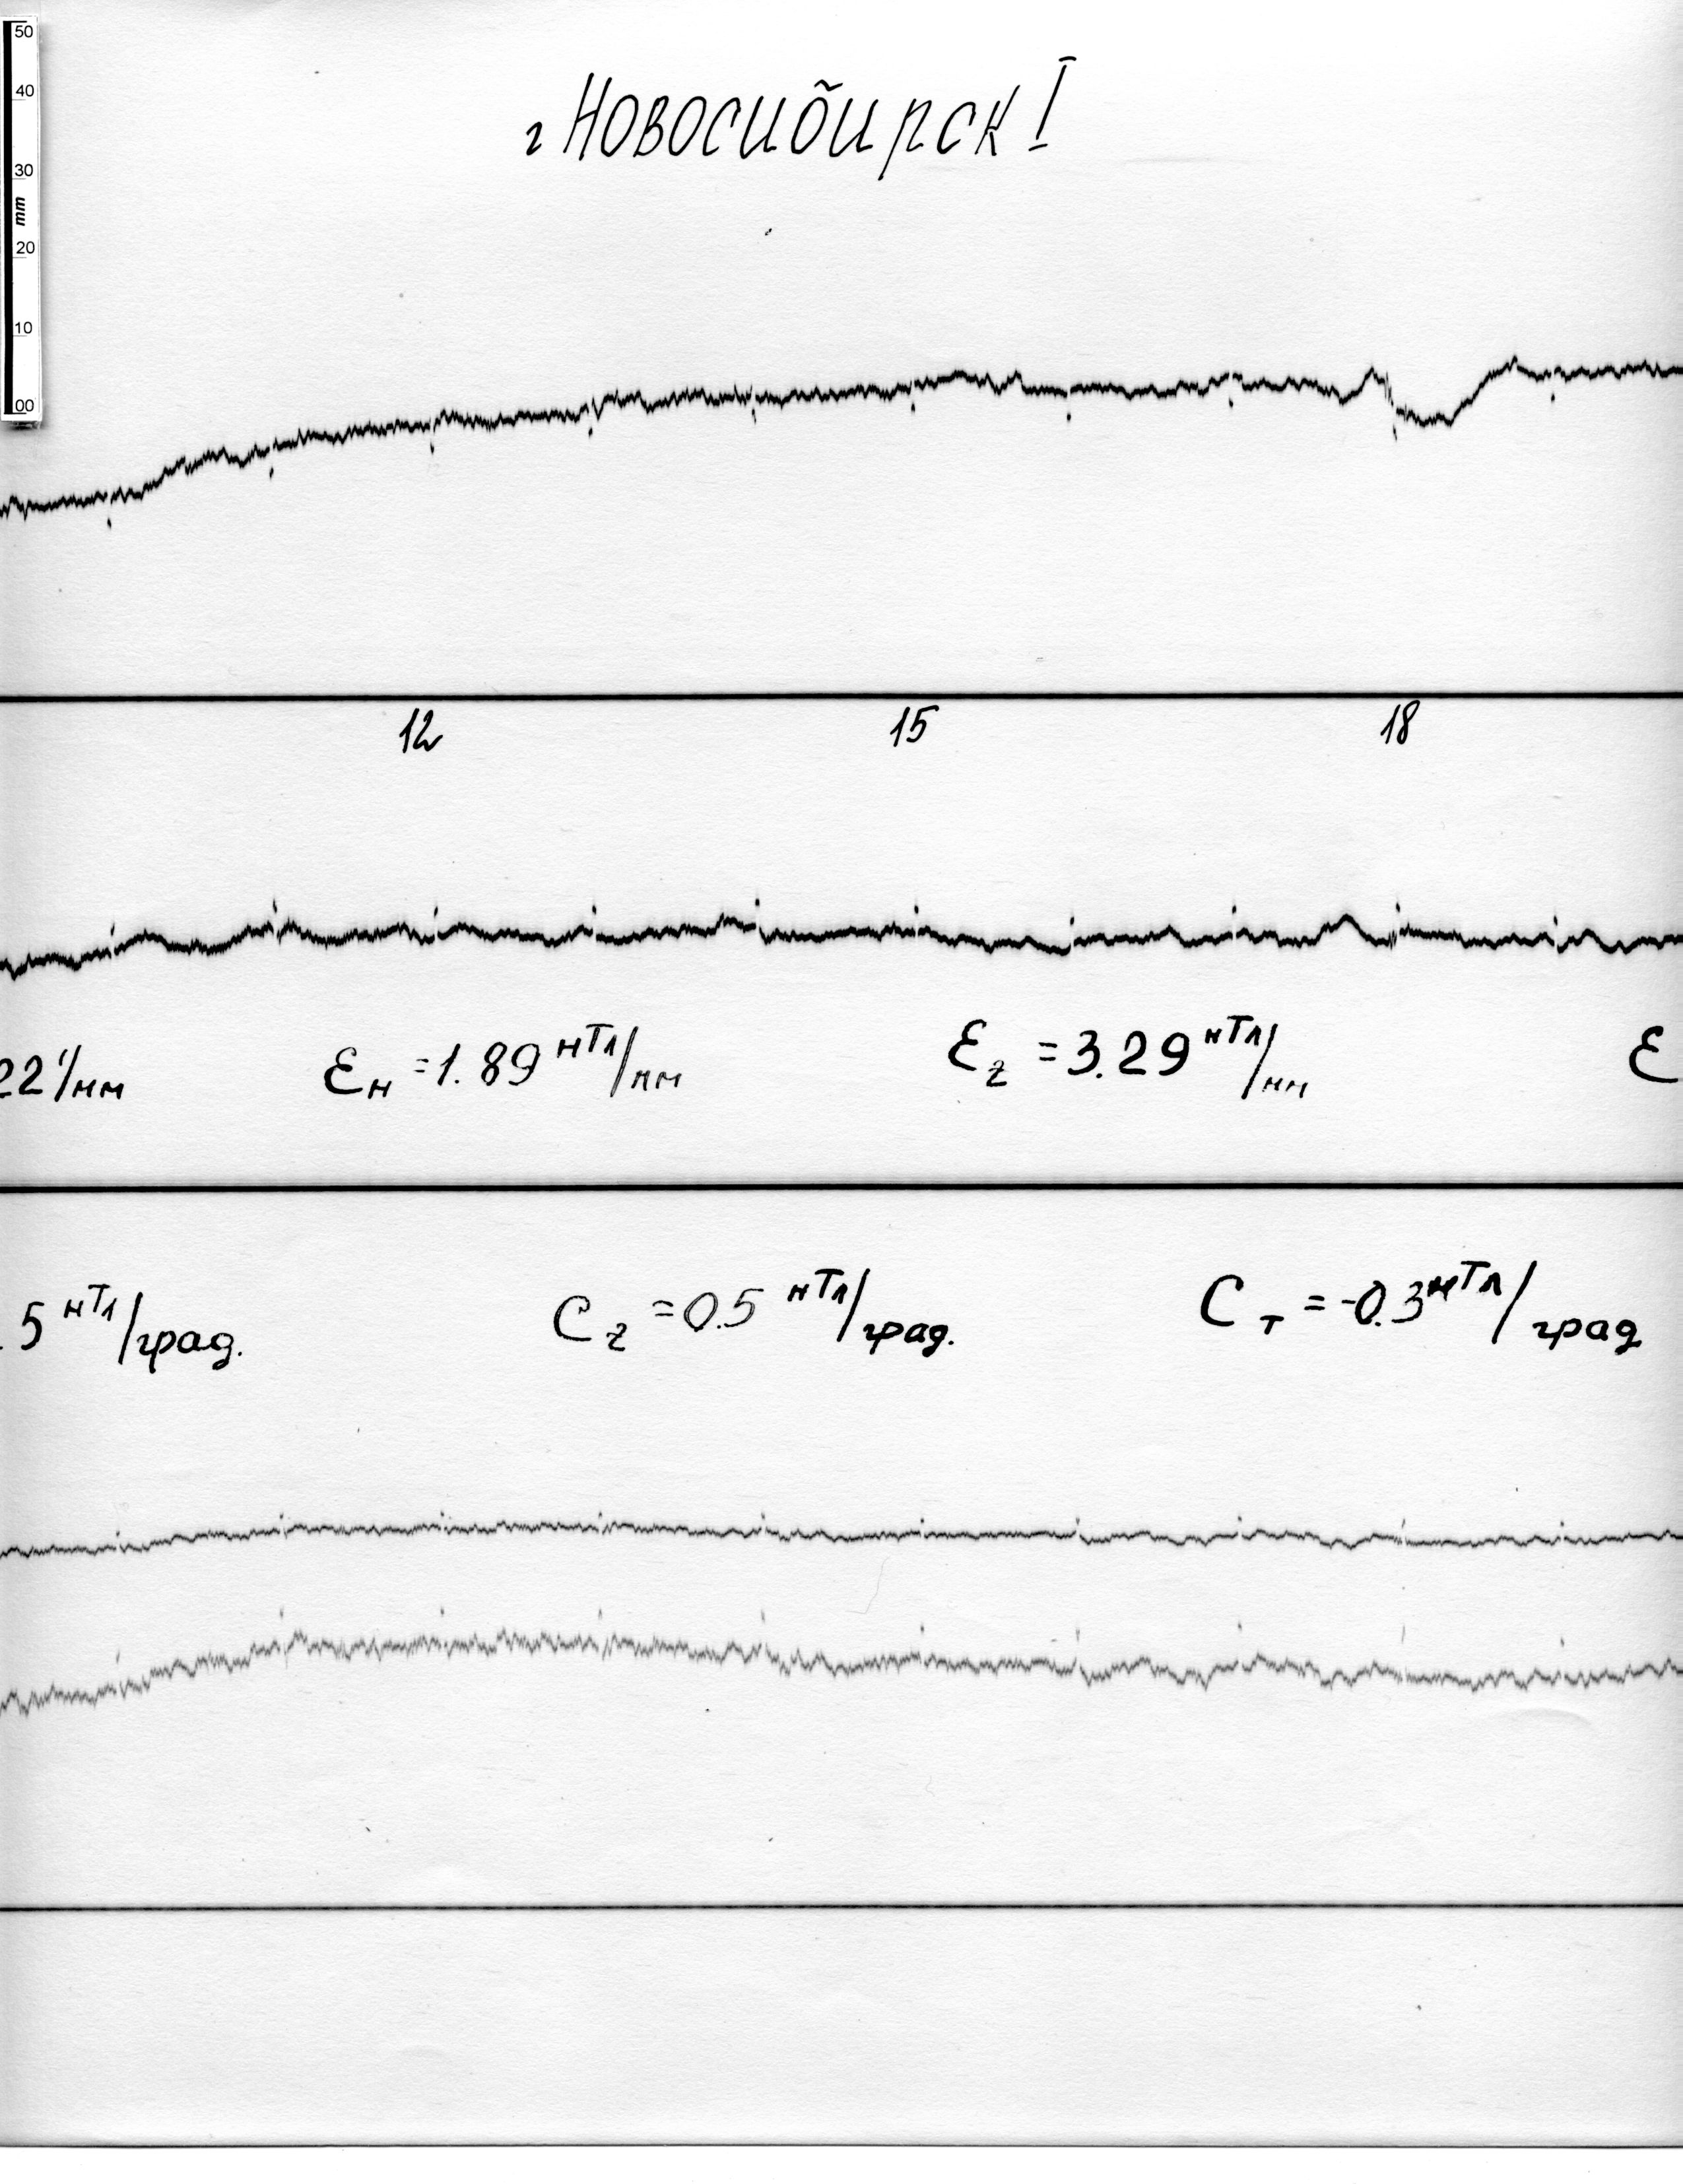 50
40
30
mm
20
10
00
г Новосибирск I
12 15 18
22'/мм Ɛн = 1.89 нТл/мм Ɛz = 3.29 нТл/мм Ɛ
.5 нТл/град. Cz = 0.5 нТл/град. Cт = -0.3 нТл/град